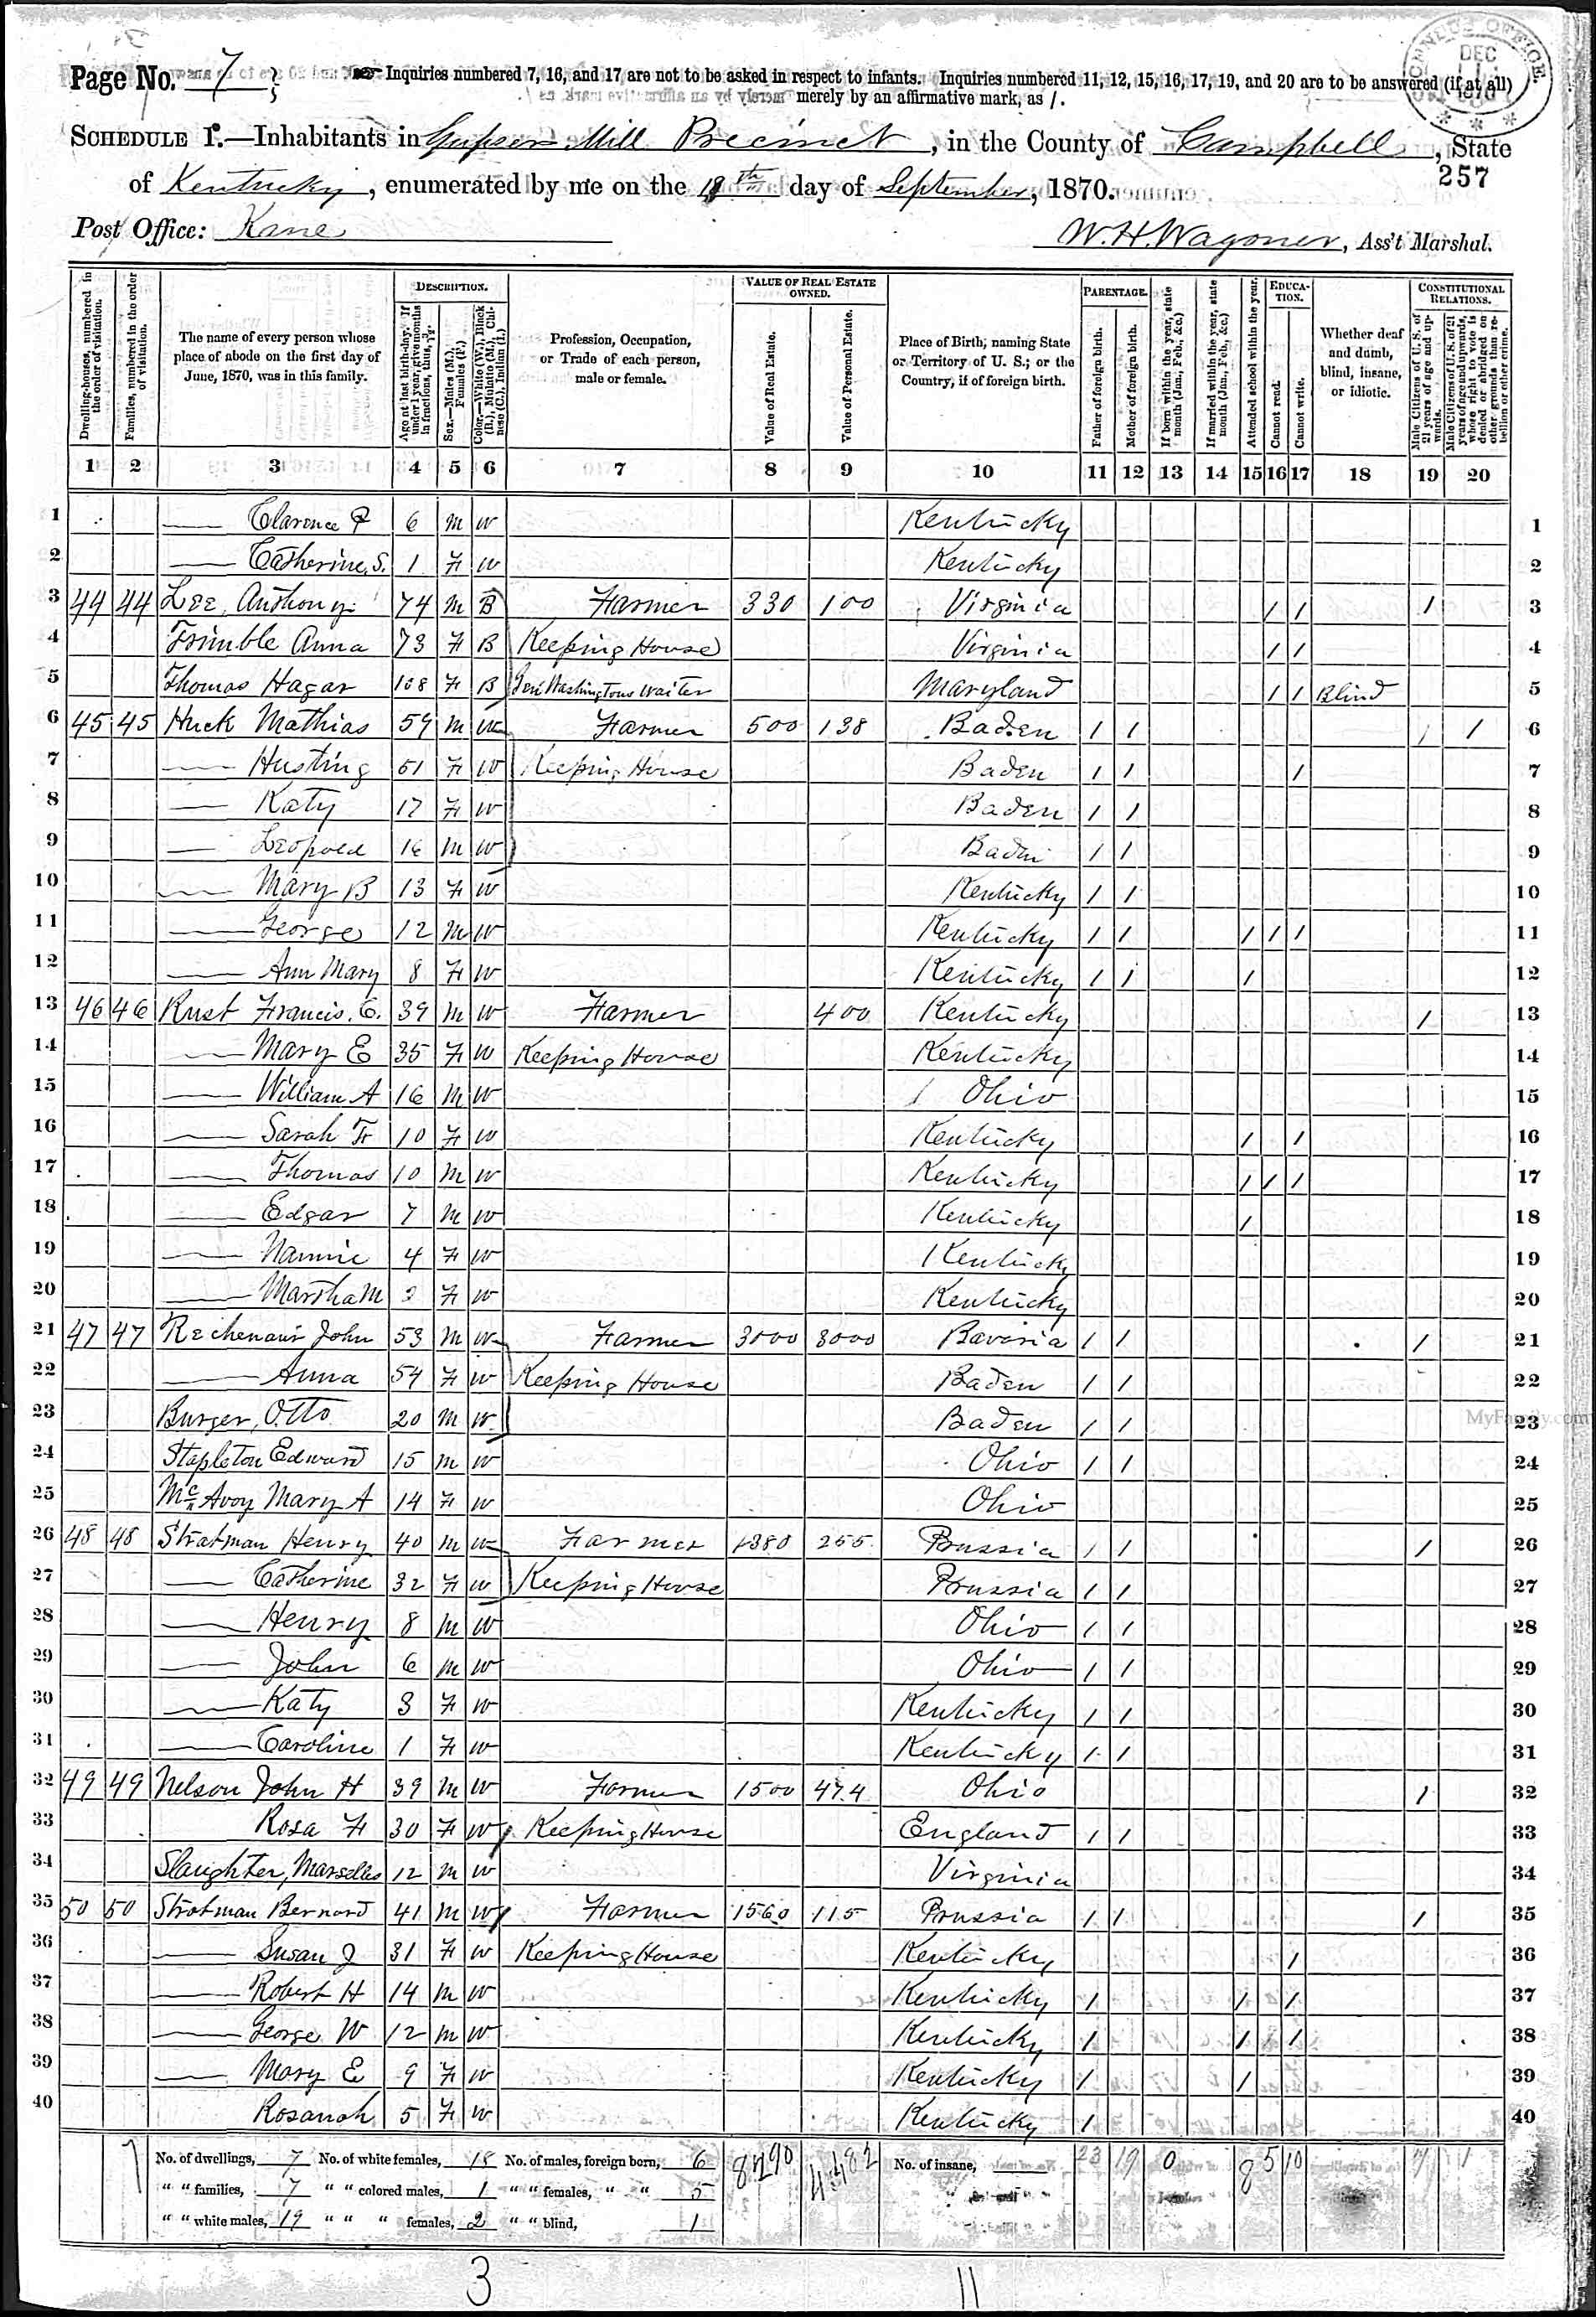 Page No. 7 } Inquiries numbered 7, 16, and 17 are not to be asked in respect to infants. Inquiries numbered 11, 12, 15, 16, 17, 19, and 20 are to be answered (if at all)
merely by an affirmative mark, as /.
DEC 1870
SCHEDULE 1.—Inhabitants in Mill Precinct, in the County of Campbell, State
of Kentucky, enumerated by me on the 18th day of September, 1870.
257
Post Office: Kane W. H. Wagoner, Ass't Marshal.
Dwelling-houses, numbered in the order of visitation. Families, numbered in the order of visitation. The name of every person whose place of abode on the first day of June, 1870, was in this family. DESCRIPTION. Age at last birth-day. If under 1 year, give months in fractions, thus, 3/12. Sex.—Males (M.), Females (F.) Color.—White (W.), Black (B.), Mulatto (M.), Chinese (C.), Indian (I.) Profession, Occupation, or Trade of each person, male or female. VALUE OF REAL ESTATE OWNED. Value of Real Estate. Value of Personal Estate. Place of Birth, naming State or Territory of U. S.; or the Country, if of foreign birth. PARENTAGE. Father of foreign birth. Mother of foreign birth. If born within the year, state month (Jan., Feb., &c.) If married within the year, state month (Jan., Feb., &c.) Attended school within the year. EDUCATION. Cannot read. Cannot write. Whether deaf and dumb, blind, insane, or idiotic. CONSTITUTIONAL RELATIONS. Male Citizens of U. S. of 21 years of age and upwards. Male Citizens of U. S. of 21 years of age and upwards, where right to vote is denied or abridged on other grounds than rebellion or other crime.
1 2 3 4 5 6 7 8 9 10 11 12 13 14 15 16 17 18 19 20
1 —— Clarence F 6 M W Kentucky 1
2 —— Catherine S. 1 F W Kentucky 2
3 44 44 Lee, Anthony 74 M B Farmer 330 100 Virginia / / / 3
4 Trimble Anna 73 F B Keeping House Virginia / / 4
5 Thomas Hagar 108 F B Gen Washingtons Waiter Maryland / / Blind 5
6 45 45 Huck Mathias 59 M W Farmer 500 138 Baden / / / / 6
7 —— Husting 51 F W Keeping House Baden / / / 7
8 —— Katy 17 F W Baden / / 8
9 —— Leopold 16 M W Baden / / 9
10 —— Mary B 13 F W Kentucky / / 10
11 —— George 12 M W Kentucky / / / / / 11
12 —— Ann Mary 8 F W Kentucky / / / 12
13 46 46 Rust Francis. C. 39 M W Farmer 400 Kentucky / 13
14 —— Mary E 35 F W Keeping House Kentucky 14
15 —— William A 16 M W Ohio 15
16 —— Sarah F 10 F W Kentucky / / 16
17 —— Thomas 10 M W Kentucky / / / 17
18 —— Edgar 7 M W Kentucky / 18
19 —— Nannie 4 F W Kentucky 19
20 —— Martha M F W Kentucky 20
21 47 47 John 53 M W Farmer 3000 3000 Bavaria / / / 21
22 —— Anna 54 F W Keeping House Baden / / 22
23 Burger, Otto 20 M W Baden / / 23
MyFamily.com
24 Stapleton Edward 15 M W Ohio / / 24
25 McAvoy Mary A 14 F W Ohio 25
26 48 48 Stratman Henry 40 M W Farmer 1380 255 Prussia / / / 26
27 —— Catherine 32 F W Keeping House Prussia / / 27
28 —— Henry 8 M W Ohio / / 28
29 —— John 6 M W Ohio / / 29
30 —— Katy 3 F W Kentucky / / 30
31 —— Caroline 1 F W Kentucky / / 31
32 49 49 Nelson John H 39 M W Farmer 1500 474 Ohio / 32
33 Rosa F 30 F W Keeping House England / / 33
34 Slaughter, Marselles 12 M W Virginia 34
35 50 50 Stratman Bernard 41 M W Farmer 1560 115 Prussia / / / 35
36 —— Susan J 31 F W Keeping House Kentucky / 36
37 —— Robert H 14 M W Kentucky / / / 37
38 —— George W 12 M W Kentucky / / / 38
39 —— Mary E 9 F W Kentucky / / 39
40 Rosanah 5 F W Kentucky / 40
No. of dwellings, 7 No. of white females, 18 No. of males, foreign born, 6 8290 4482 No. of insane, 23 19 0 8 5 10 7 1
" " families, 7 " " colored males, 1 " " females, " " 5
" " white males, 19 " " " females, 2 " " blind, 1
3 11